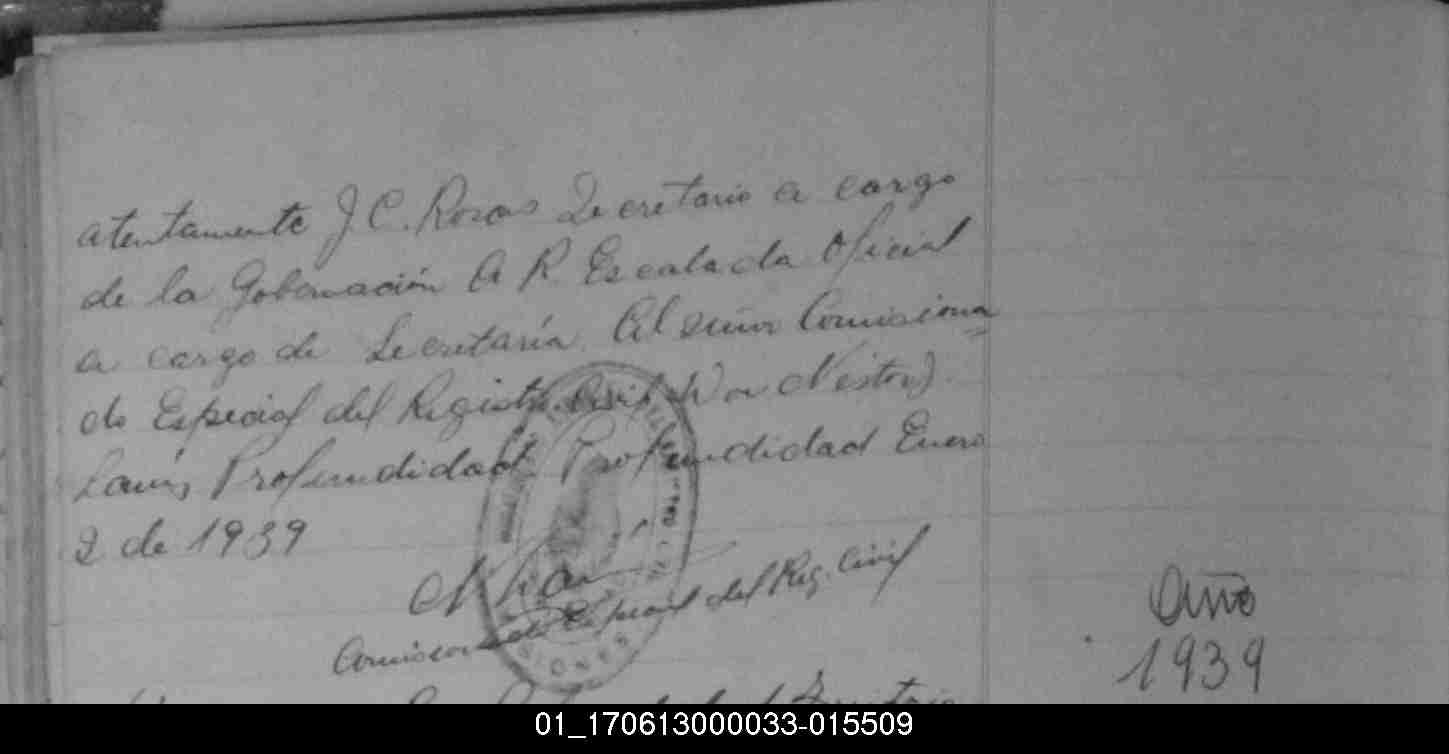 atentamente J C. Rosas Secretario a cargo
de la Gobernación A R. Escalada Oficial
a cargo de Secretaría. Al señor Comisiona
do Especial del Registro Civil Don Nestor
Profundidad Profundidad Enero
2 de 1939
Comisionado Especial del Reg. Civil
Año
1939
01_170613000033-015509